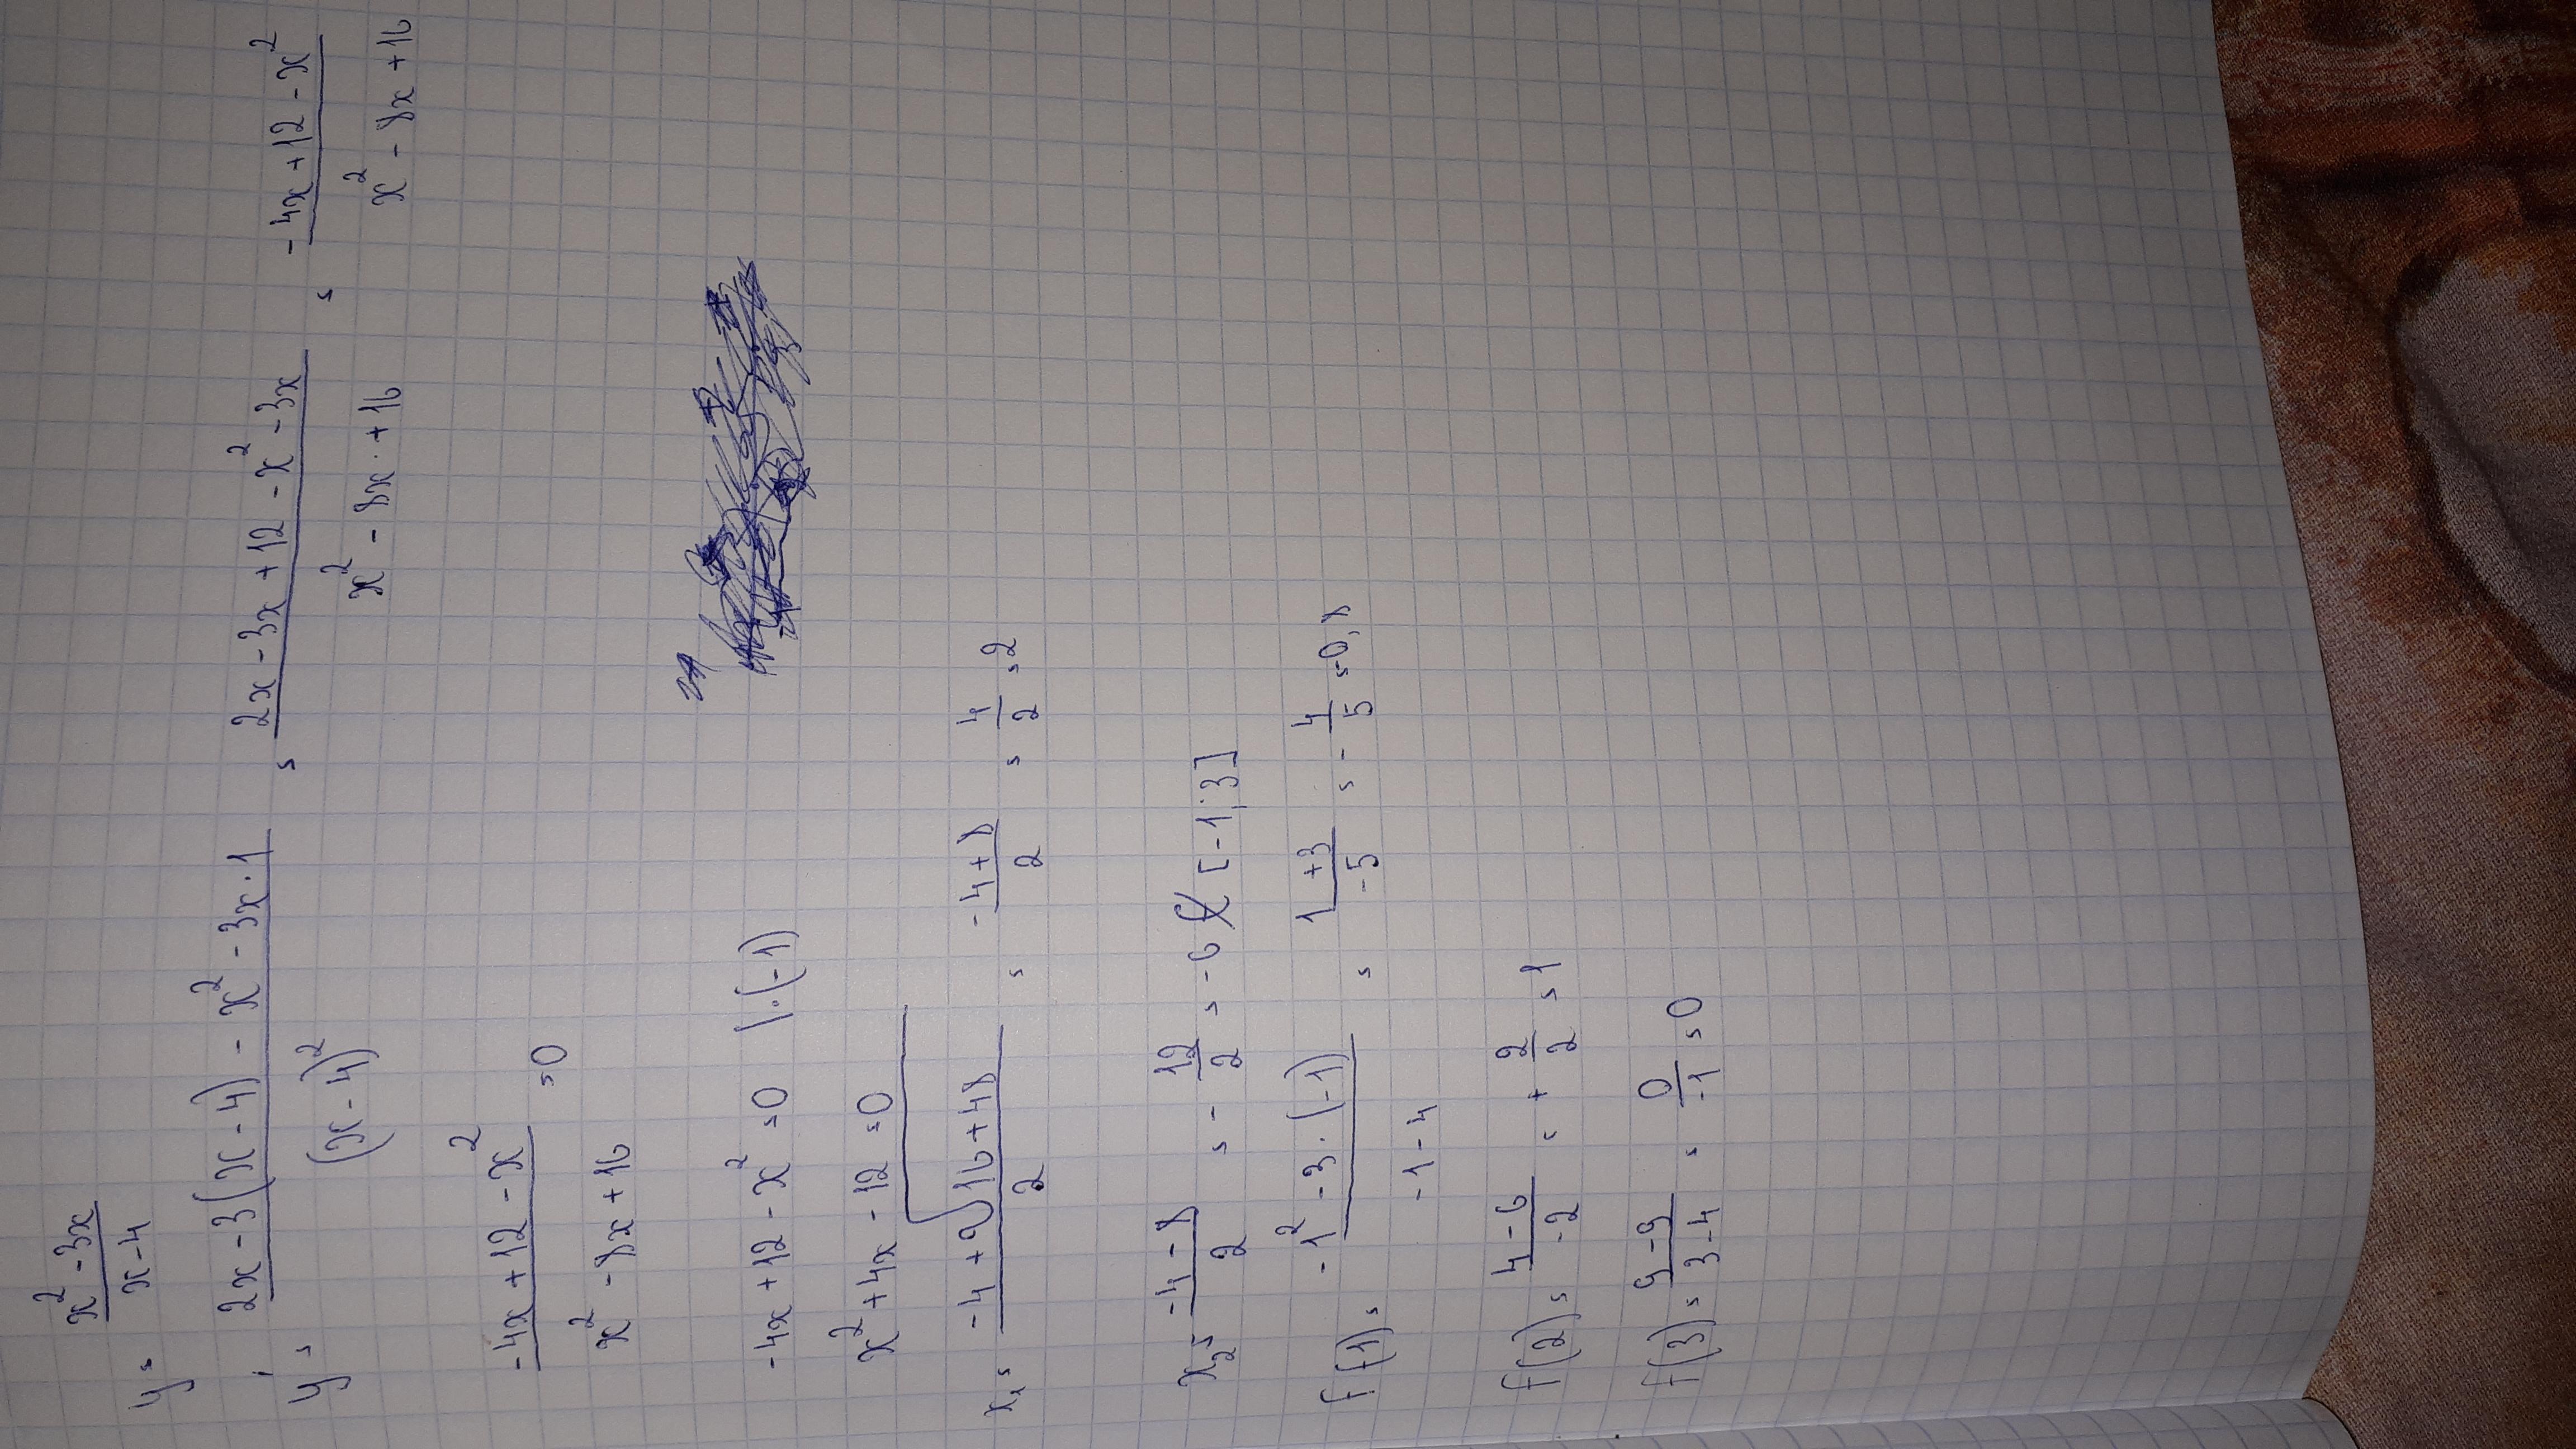 y = (x² - 3x)/(x - 4)
y' = (2x - 3(x - 4) - x² - 3x · 1)/(x - 4)² = (2x - 3x + 12 - x² - 3x)/(x² - 8x · + 16) = (-4x + 12 - x²)/(x² - 8x + 16)
(-4x + 12 - x²)/(x² - 8x + 16) = 0
-4x + 12 - x² = 0 | · (-1)
x² + 4x - 12 = 0
x₁ = (-4 + √(16 + 48))/2 = (-4 + 8)/2 = 4/2 = 2
x₂ = (-4 - 8)/2 = - 12/2 = -6 ∉ [-1; 3]
f(1) = (-1² - 3 · (-1))/(-1 - 4) = (1 + 3)/(-5) = - 4/5 = -0,8
f(2) = (4 - 6)/(-2) = + 2/2 = 1
f(3) = (9 - 9)/(3 - 4) = 0/(-1) = 0